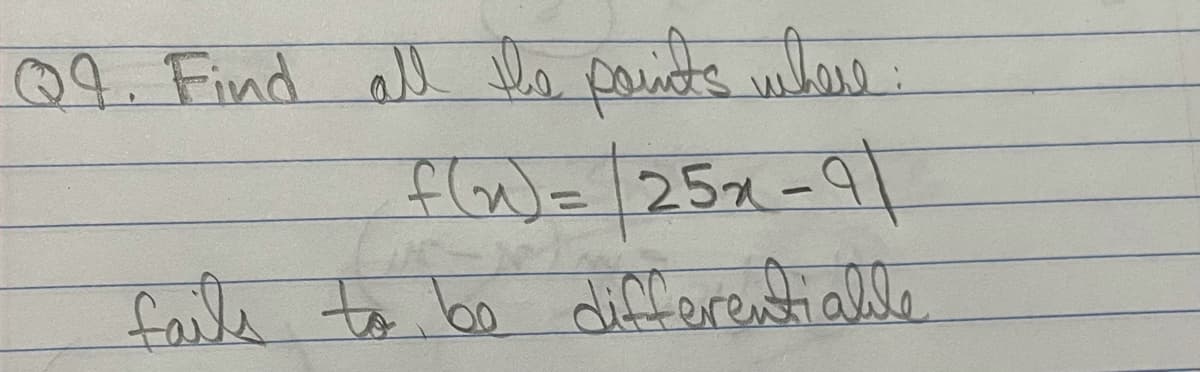 Q9. Find all the points where:
f(x)= |25x-9|
fails to be differentiable